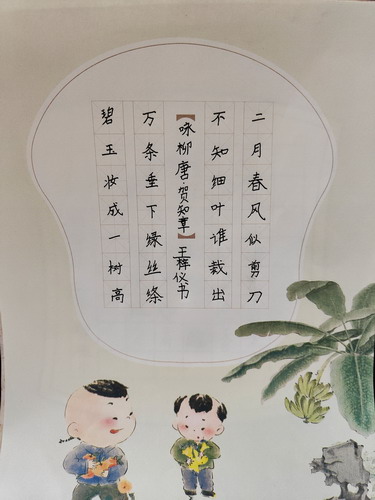 碧玉妆成一树高
万条垂下绿丝绦
【咏柳唐·贺知章】王梓仪书
不知细叶谁裁出
二月春风似剪刀